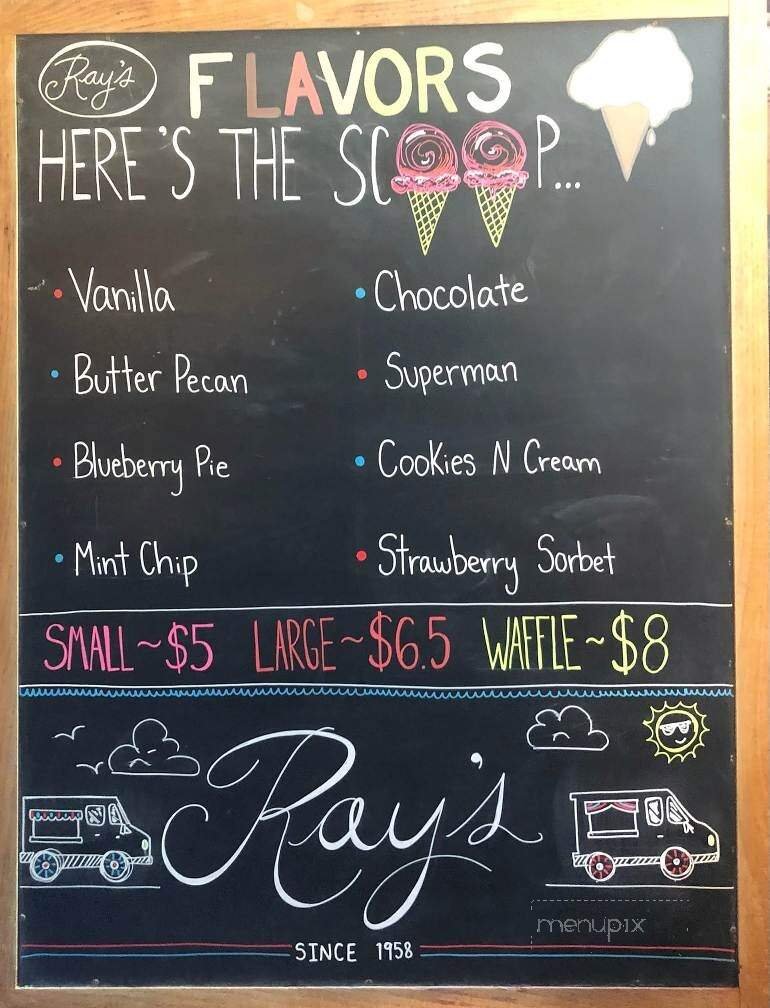 Ray's FLAVORS
HERE'S THE SCOOP...
• Vanilla
• Chocolate
• Butter Pecan
• Superman
• Blueberry Pie
• Cookies N Cream
• Mint Chip
• Strawberry Sorbet
SMALL ~ $5 LARGE ~ $6.5 WAFFLE ~ $8
Ray's
menupix
SINCE 1958